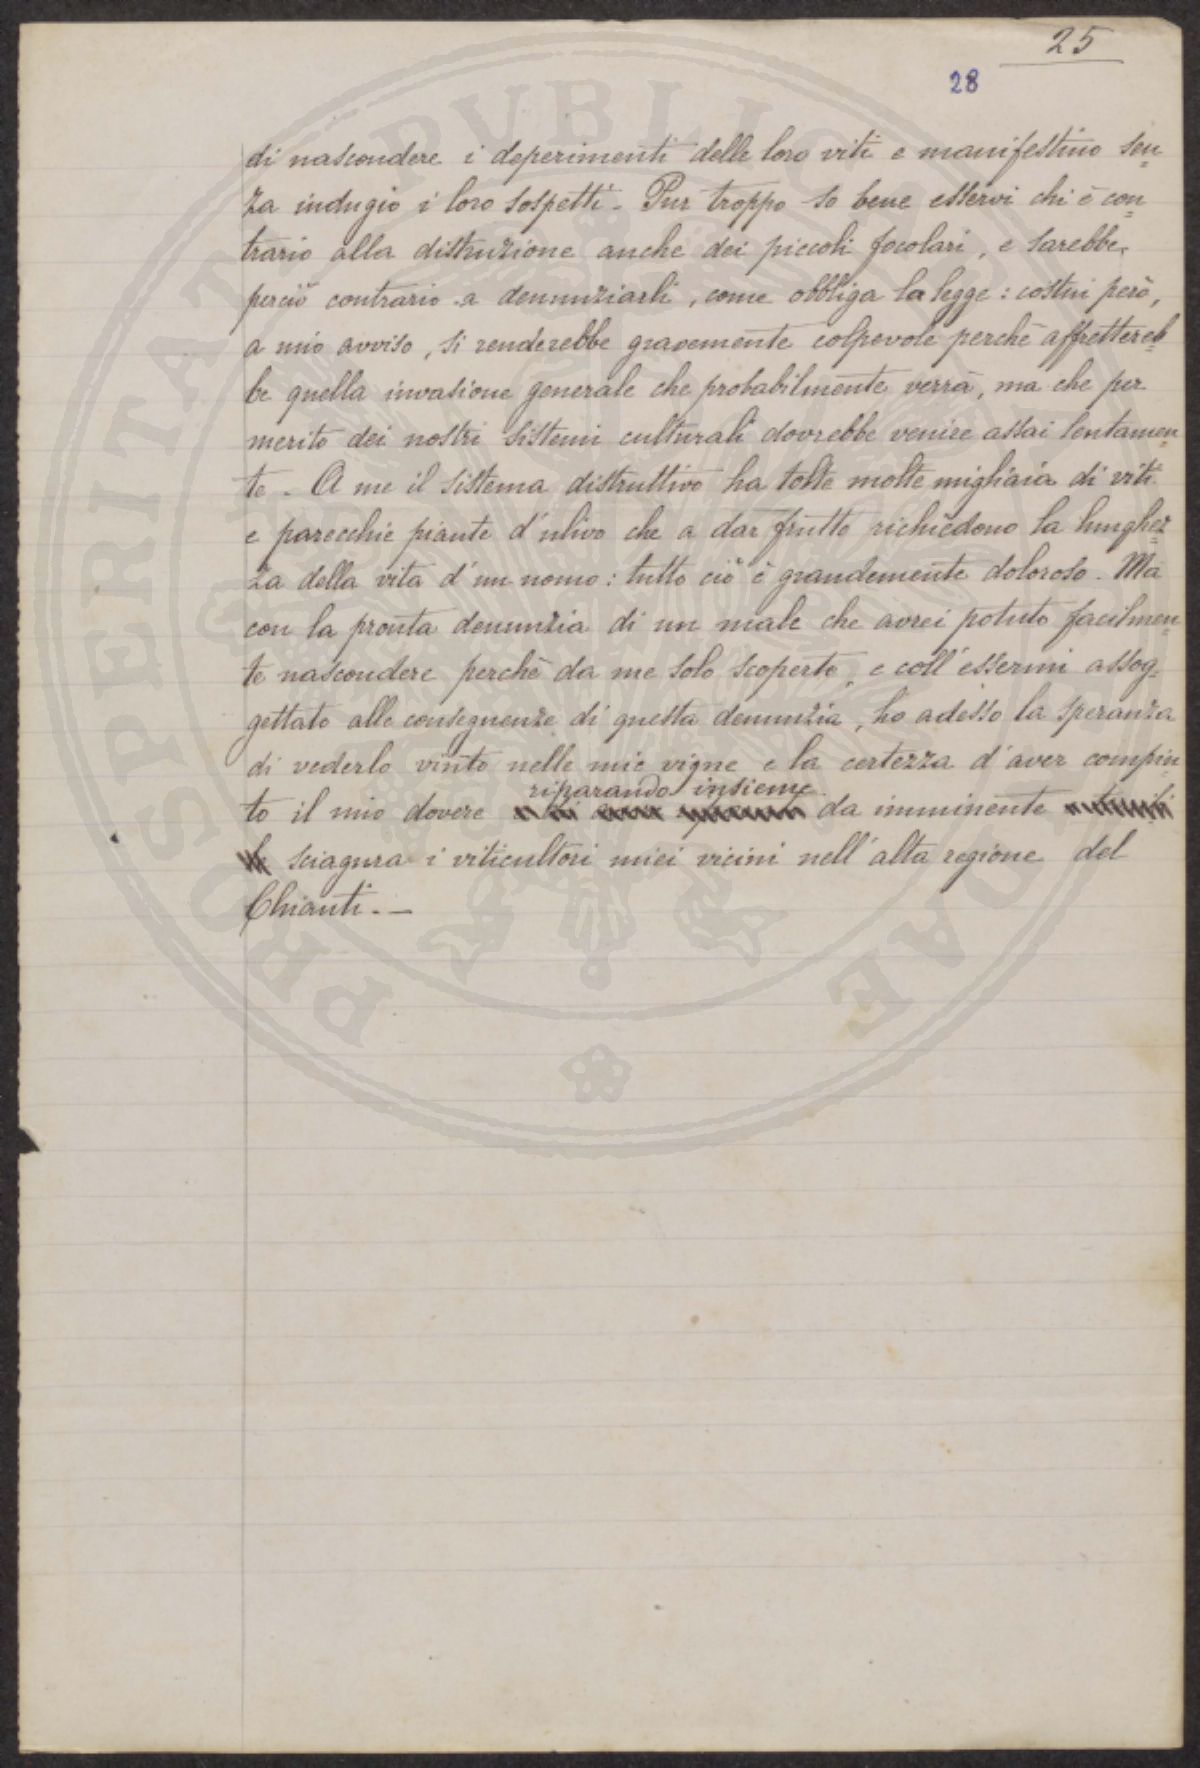 25
28
di nascondere i deperimenti delle loro viti e manifestino sen=
za indugio i loro sospetti - Pur troppo so bene esservi chi è con=
trario alla distruzione anche dei piccoli focolari, e sarebbe
perciò contrario a denunziarli, come obbliga la legge: costui però,
a mio avviso, si renderebbe gravemente colpevole perchè affretereb=
be quella invasione generale che probabilmente verrà, ma che per
merito dei nostri sistemi culturali dovrebbe venire assai lentamen=
te - A me il sistema distruttivo ha tolte molte migliaia di viti
e parecchie piante d'ulivo che a dar frutto richiedono la lunghez=
za della vita d'un uomo: tutto ciò è grandemente doloroso. Ma
con la pronta denunzia di un male che avrei potuto facilmen=
te nascondere perchè da me solo scoperto, e coll'essermi assog=
gettato alle conseguenze di questa denunzia, ho adesso la speranza
di vederlo vinto nelle mie vigne e la certezza d'aver compiu=
riparando insieme
to il mio dovere da imminente
sciagura i viticultori miei vicini nell'alta regione del
Chianti. —
PROSPERITATI PUBLICAE AUGENDAE